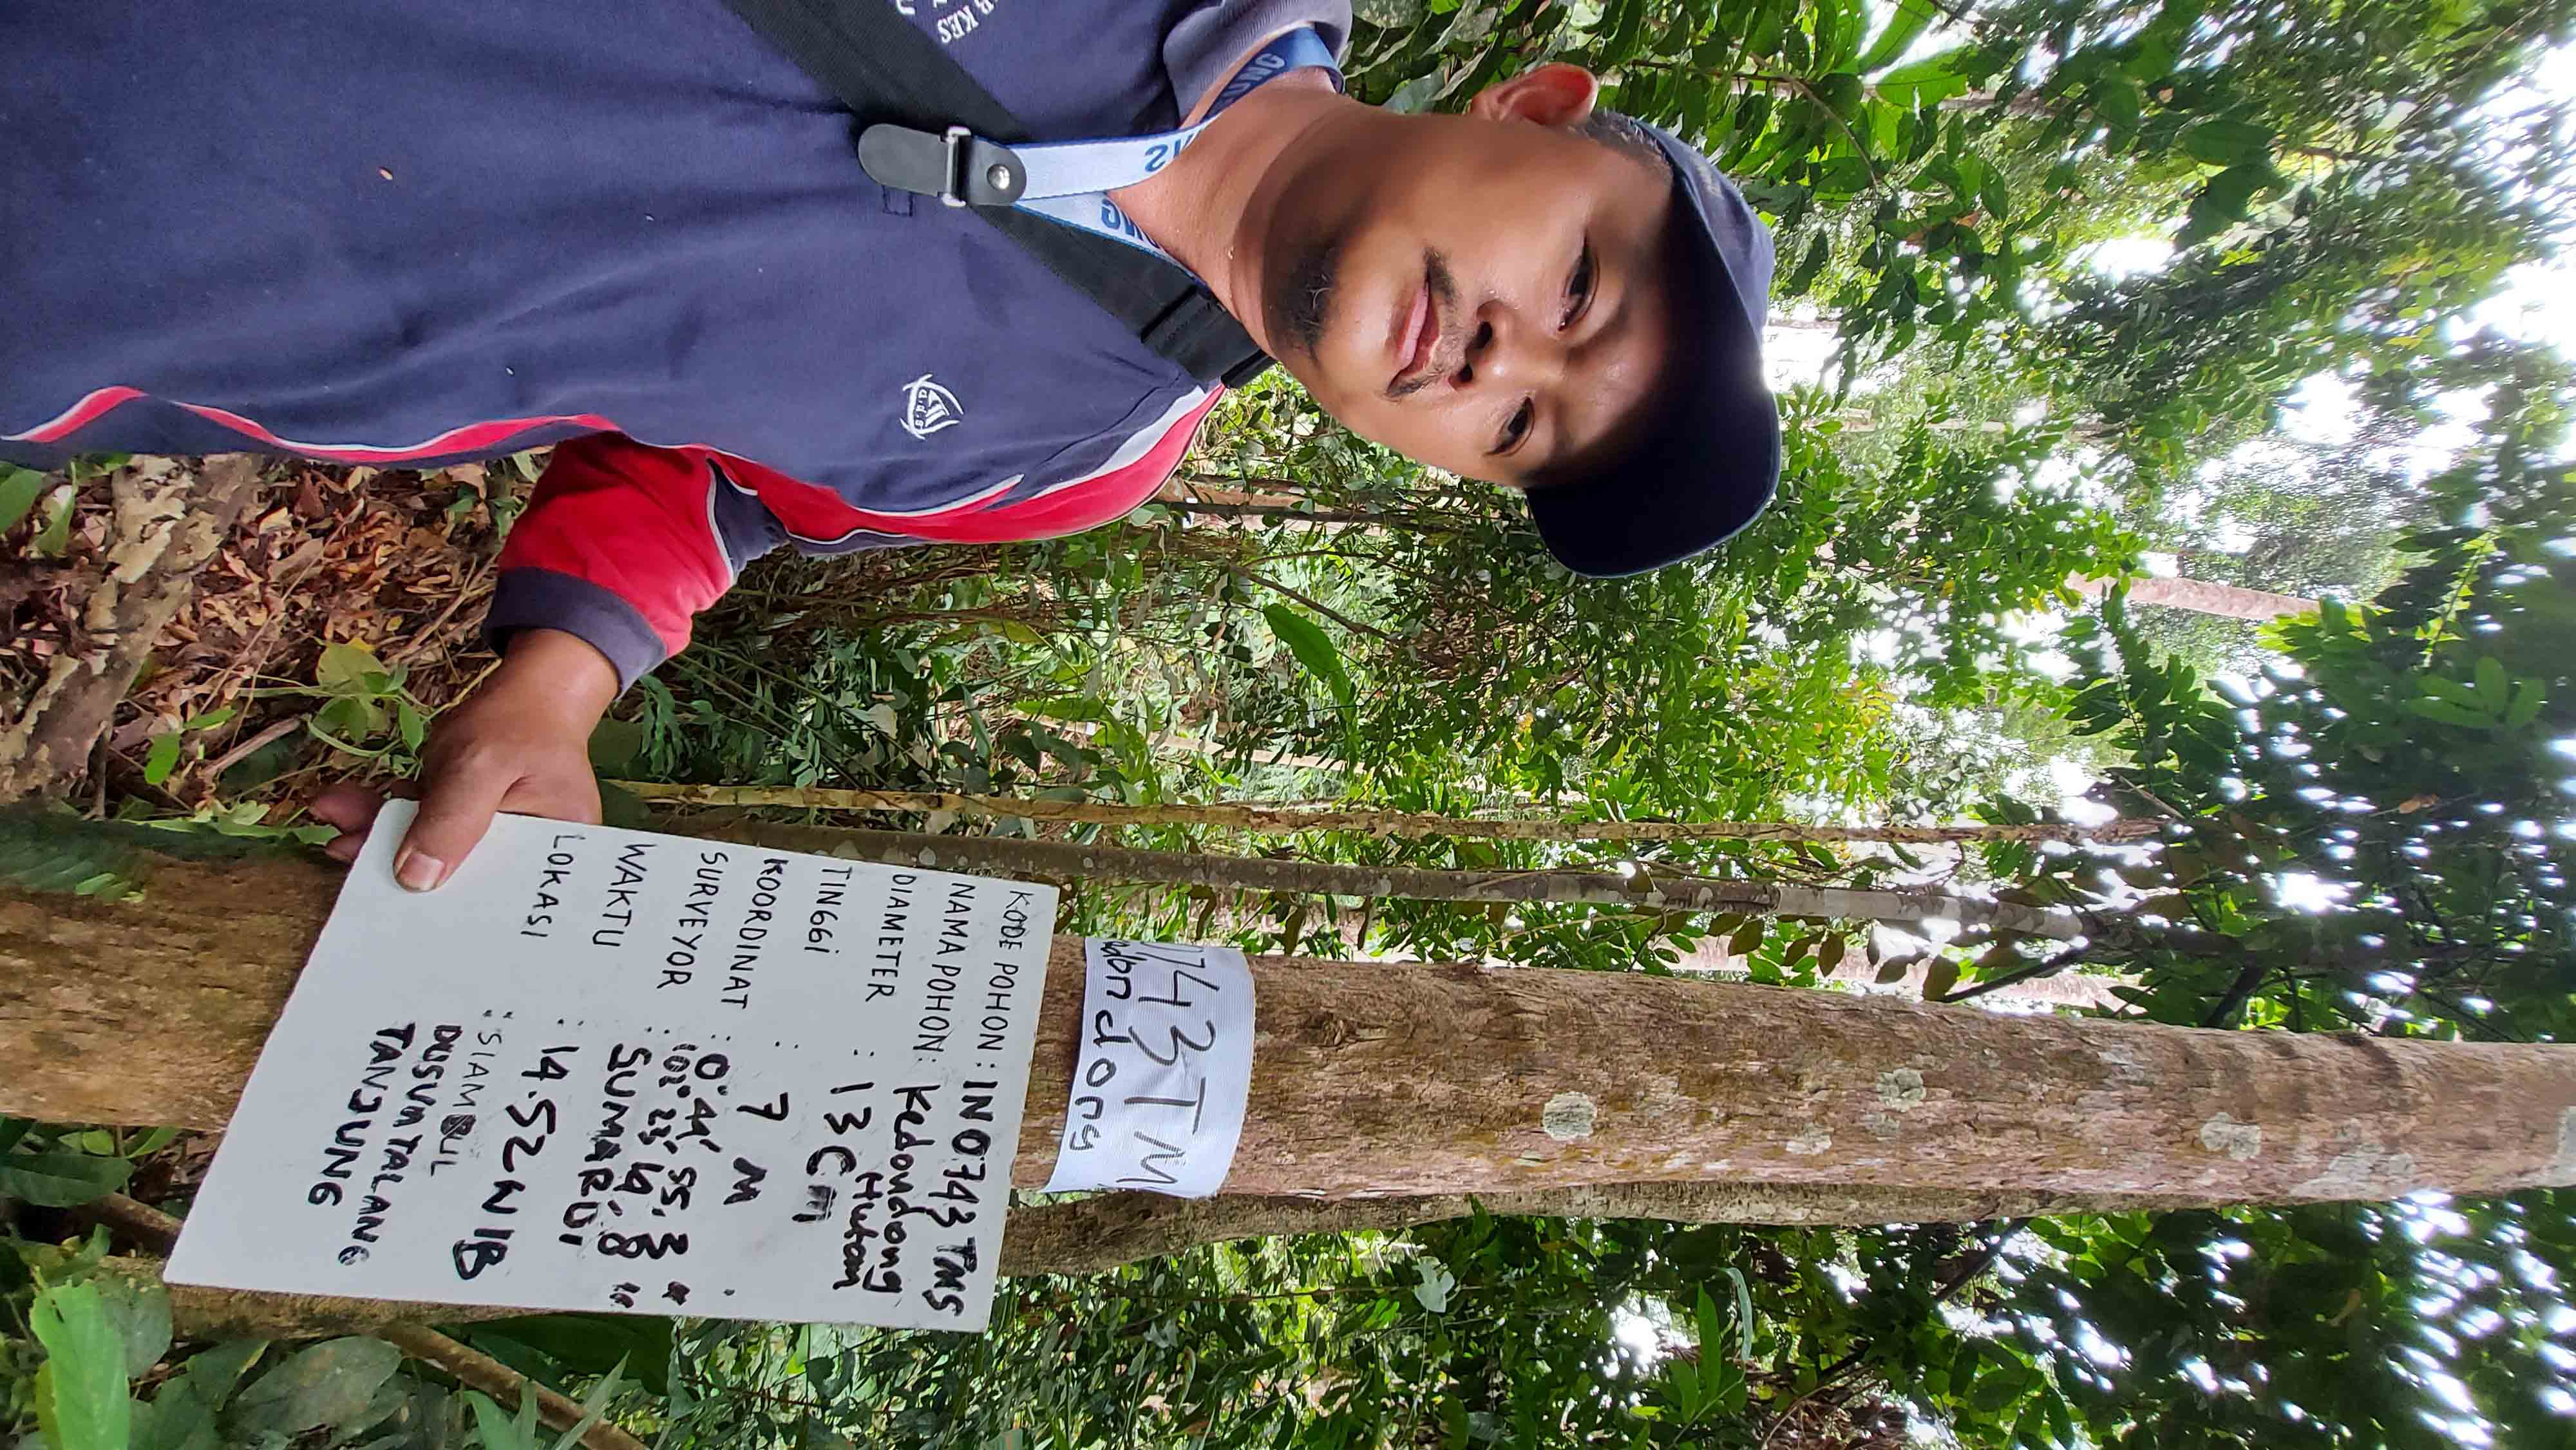 KODE POHON : IN0743 TMS
NAMA POHON : Kedondong
Hutan
DIAMETER : 13 Cm
TINGGI : 7 M
KOORDINAT : 0° 44' 55.3"
102° 23' 19.8"
SURVEYOR : SUMARDI
WAKTU : 14.52 WIB
LOKASI : SIAMBUL
DUSUN TALANG
TANJUNG
0743TM
ondong
a.d.s